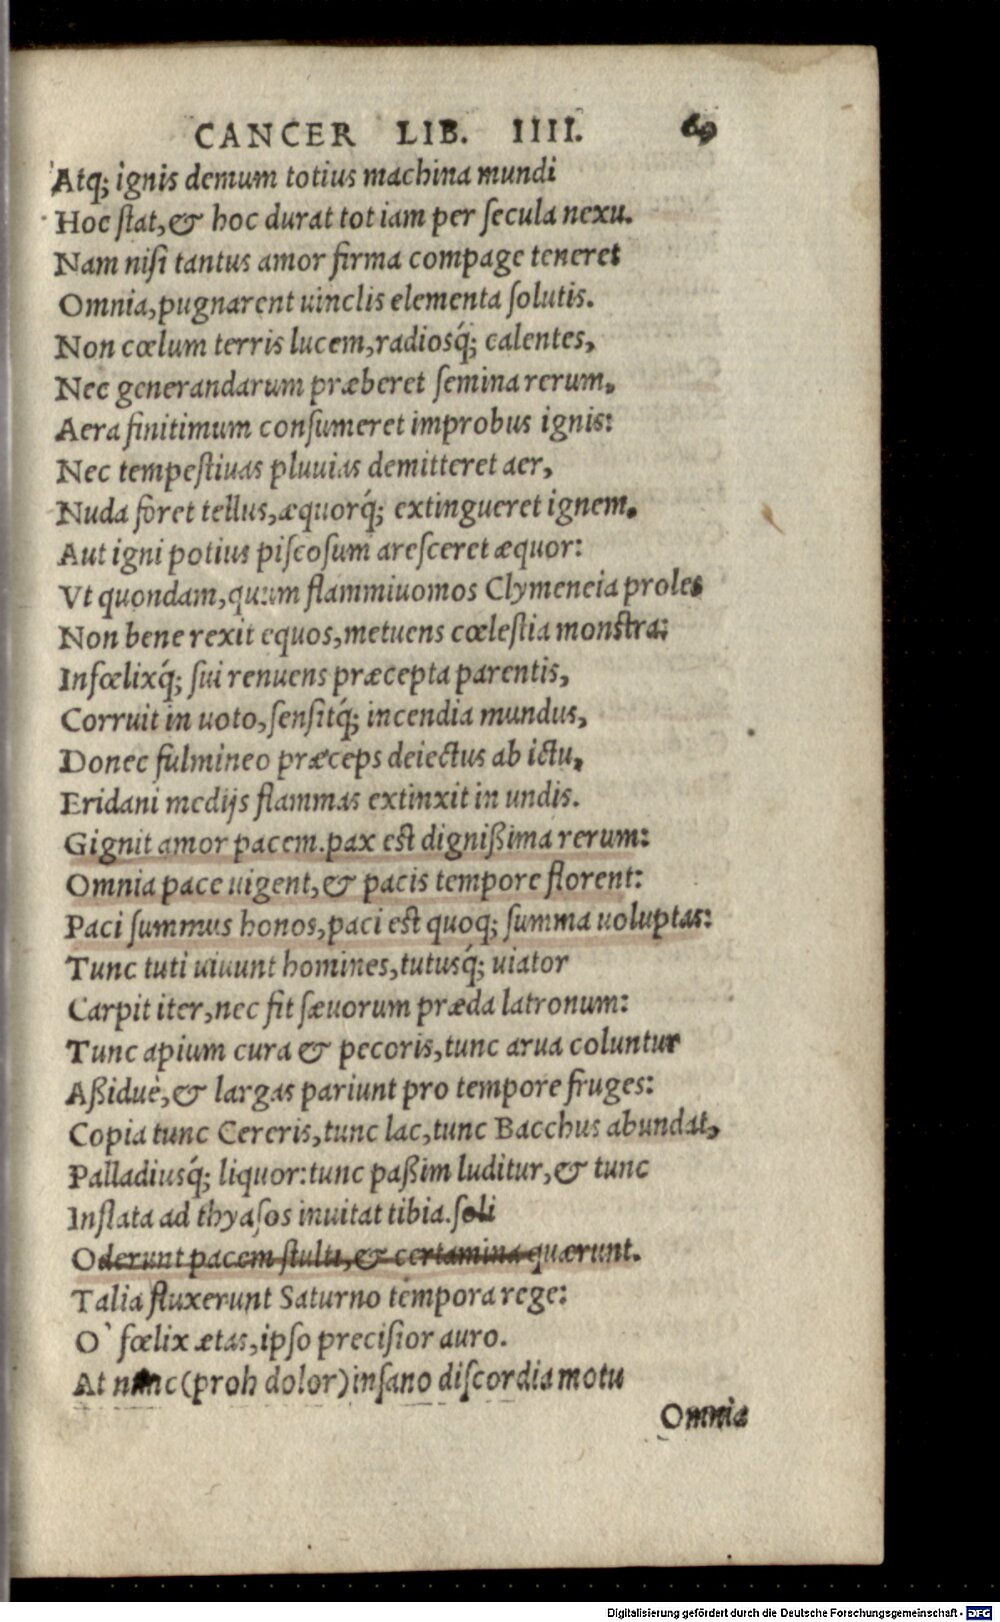 CANCER LIB. IIII. 69
Atq; ignis demum totius machina mundi
Hoc ſtat, & hoc durat tot iam per ſecula nexu.
Nam niſi tantus amor firma compage teneret
Omnia, pugnarent uinclis elementa ſolutis.
Non cœlum terris lucem, radiosq́; calentes,
Nec generandarum præberet ſemina rerum,
Aera finitimum conſumeret improbus ignis:
Nec tempeſtiuas pluuias demitteret aer,
Nuda foret tellus, æquorq́; extingueret ignem.
Aut igni potius piſcoſum areſceret æquor:
Vt quondam, quum flammiuomos Clymeneia proles
Non bene rexit equos, metuens cœleſtia monſtra:
Infœlixq́; ſui renuens præcepta parentis,
Corruit in uoto, ſenſitq́; incendia mundus,
Donec fulmineo præceps deiectus ab ictu,
Eridani medijs flammas extinxit in undis.
Gignit amor pacem. pax eſt digniſſima rerum:
Omnia pace uigent, & pacis tempore florent:
Paci ſummus honos, paci eſt quoq; ſumma uoluptas:
Tunc tuti uiuunt homines, tutusq́; uiator
Carpit iter, nec fit ſæuorum præda latronum:
Tunc apium cura & pecoris, tunc arua coluntur
Aßiduè, & largas pariunt pro tempore fruges:
Copia tunc Cereris, tunc lac, tunc Bacchus abundat,
Palladiusq́; liquor: tunc paßim luditur, & tunc
Inflata ad thyaſos inuitat tibia. ſoli
Oderunt pacem ſtulti, & certamina quærunt.
Talia fluxerunt Saturno tempora rege:
O` fœlix ætas, ipſo preciſior auro.
At nunc (proh dolor) inſano diſcordia motu
Omnia
Digitalisierung gefördert durch die Deutsche Forschungsgemeinschaft - DFG